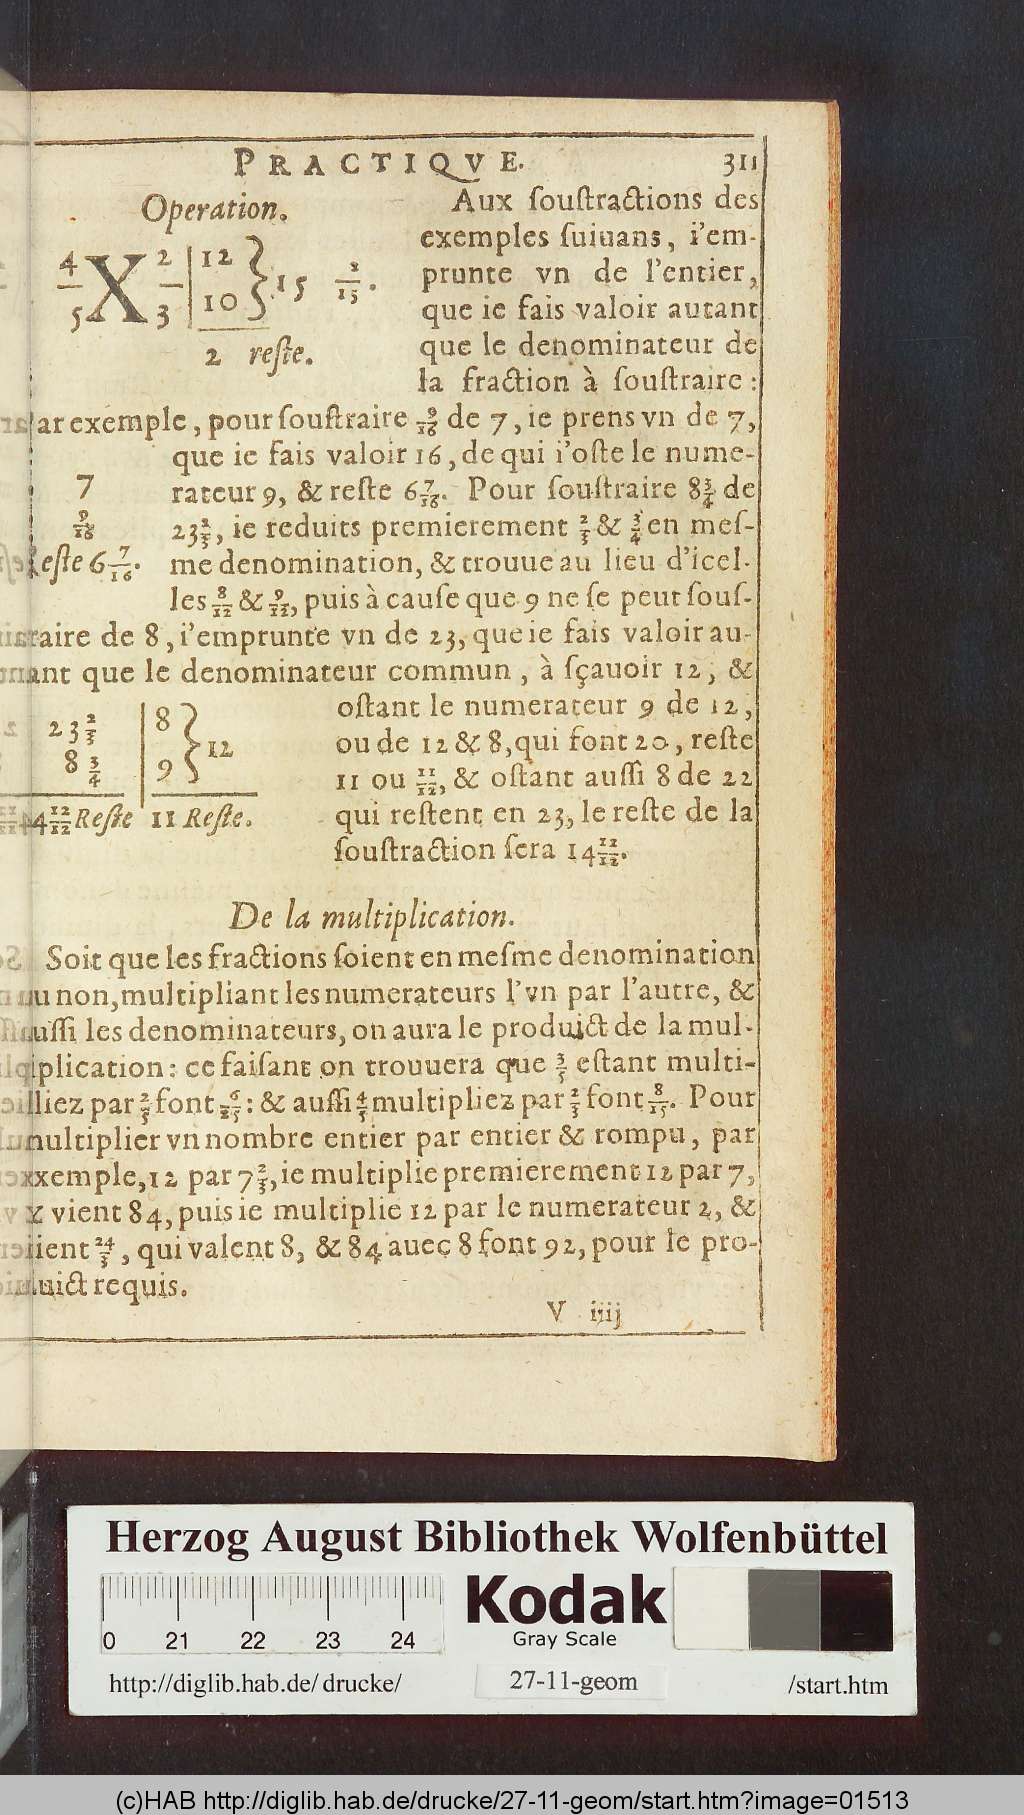 PRACTIQVE. 311
Operation.
4/5 X 2/3 | 12 10 } 15 2/15.
2 reste.
Aux soustractions des
exemples suiuans, i'em-
prunte vn de l'entier,
que ie fais valoir autant
que le denominateur de
la fraction à soustraire:
ar exemple, pour soustraire 9/16 de 7, ie prens vn de 7,
que ie fais valoir 16, de qui i'oste le nume-
rateur 9, & reste 6 7/16. Pour soustraire 8 3/4 de
23 2/3, ie reduits premierement 2/3 & 3/4 en mes-
me denomination, & trouue au lieu d'icel-
les 8/12 & 9/12, puis à cause que 9 ne se peut sous-
7
9/16
este 6 7/16.
raire de 8, i'emprunte vn de 23, que ie fais valoir au-
ant que le denominateur commun, à sçauoir 12, &
ostant le numerateur 9 de 12,
ou de 12 & 8, qui font 20, reste
11 ou 11/12, & ostant aussi 8 de 22
qui restent en 23, le reste de la
soustraction sera 14 11/12.
23 2/3 | 8
8 3/4 | 9 } 12
4 12/12 Reste 11 Reste.
De la multiplication.
Soit que les fractions soient en mesme denomination
u non, multipliant les numerateurs l'vn par l'autre, &
ussi les denominateurs, on aura le produict de la mul-
iplication: ce faisant on trouuera que 3/5 estant multi-
liez par 2/5 font 6/25: & aussi 4/5 multipliez par 2/3 font 8/15. Pour
multiplier vn nombre entier par entier & rompu, par
xemple, 12 par 7 2/3, ie multiplie premierement 12 par 7,
& vient 84, puis ie multiplie 12 par le numerateur 2, &
ient 24/3, qui valent 8, & 84 auec 8 font 92, pour le pro-
uict requis.
V iiij
Herzog August Bibliothek Wolfenbüttel
0 21 22 23 24
Kodak
Gray Scale
http://diglib.hab.de/ drucke/ 27-11-geom /start.htm
(c)HAB http://diglib.hab.de/drucke/27-11-geom/start.htm?image=01513